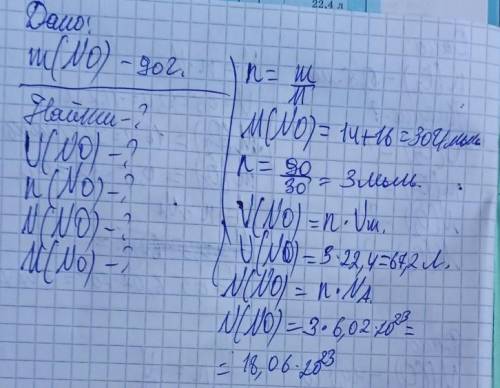 22,4 л
Дано:
m(NO) - 90г.
Найти - ?
V(NO) - ?
n(NO) - ?
N(NO) - ?
M(NO) - ?
n = m/M
M(NO) = 14+16 = 30г/моль
n = 90/30 = 3 моль.
V(NO) = n · Vm.
V(NO) = 3 · 22,4 = 67,2 л.
N(NO) = n · NA.
N(NO) = 3 · 6,02 · 10²³ =
= 18,06 · 10²³